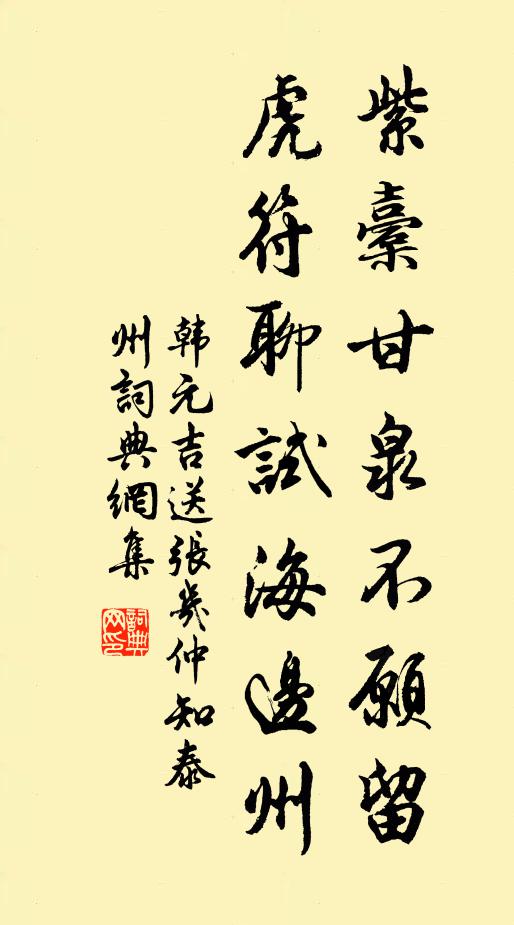 紫橐甘泉不願留
虎符聊試海邊州
韩元吉送張幾仲知泰
州詞典網集
詞典
网印